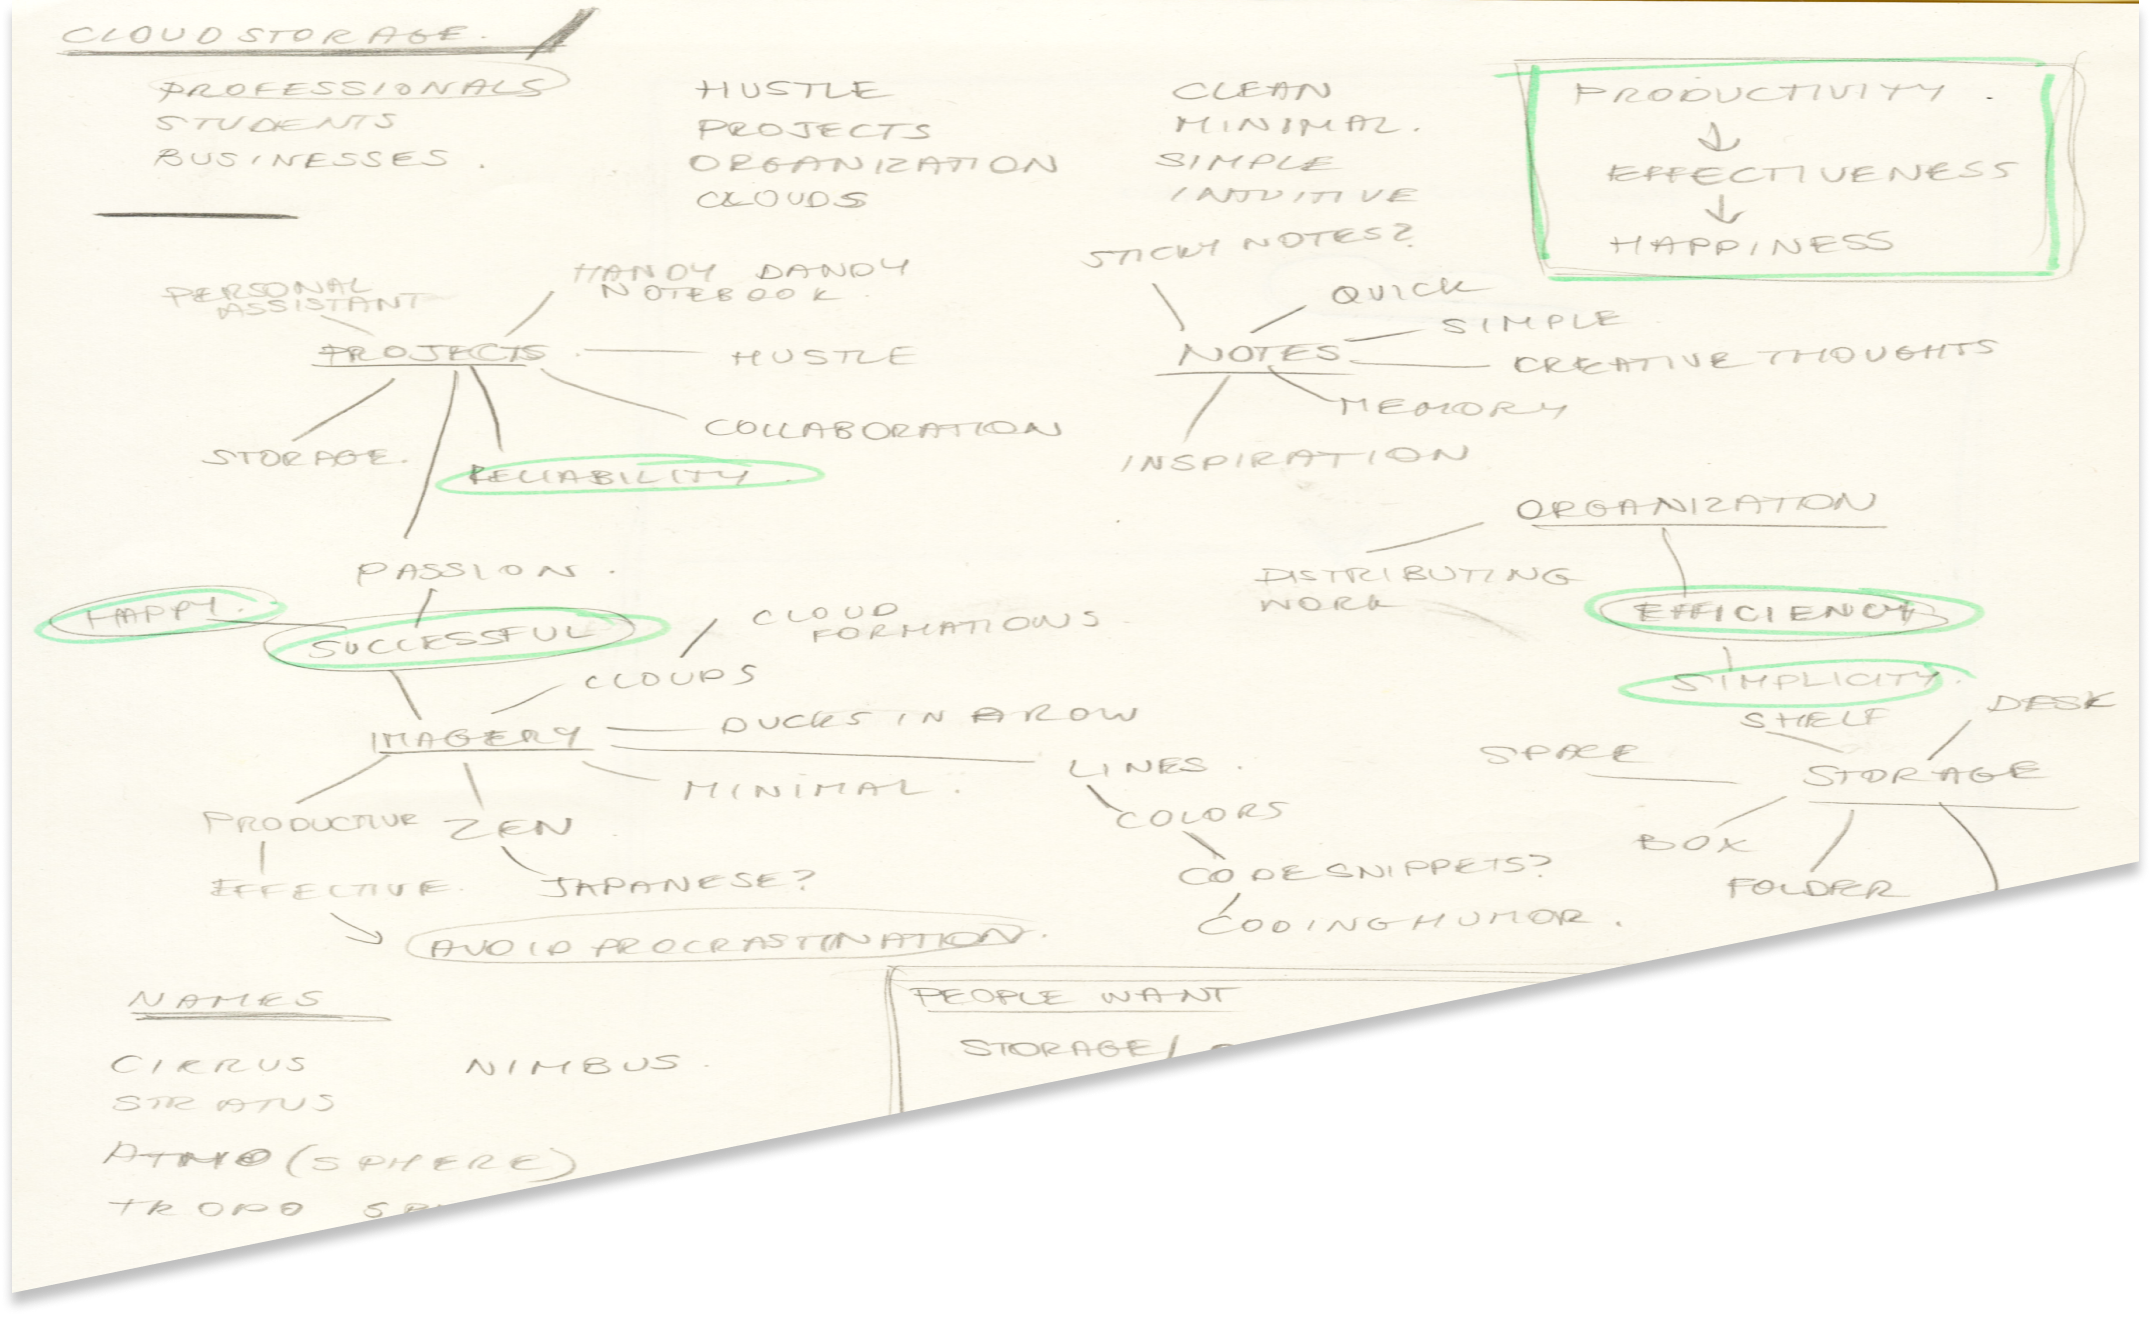 CLOUD STORAGE.
PROFESSIONALS
STUDENTS
BUSINESSES.
HUSTLE
PROJECTS
ORGANIZATION
CLOUDS
CLEAN
MINIMAL.
SIMPLE
INTUITIVE
PRODUCTIVITY.
EFFECTIVENESS
HAPPINESS
PERSONAL
ASSISTANT
HANDY DANDY
NOTEBOOK.
PROJECTS.
HUSTLE
COLLABORATION
STORAGE.
RELIABILITY.
PASSION.
HAPPY.
SUCCESSFUL
STICKY NOTES?
QUICK
SIMPLE
NOTES
CREATIVE THOUGHTS
MEMORY
INSPIRATION
ORGANIZATION
DISTRIBUTING
WORK
EFFICIENCY
SIMPLICITY.
CLOUD
FORMATIONS.
CLOUDS
IMAGERY
DUCKS IN A ROW
LINES.
MINIMAL.
COLORS
PRODUCTIVE
ZEN
EFFECTIVE.
JAPANESE?
CODE SNIPPETS?
CODING HUMOR.
AVOID PROCRASTINATION.
SHELF
DESK
SPACE
STORAGE
BOX
FOLDER
NAMES
CIRRUS
NIMBUS.
STRATUS
ATMO (SPHERE)
TROPO
PEOPLE WANT
STORAGE/